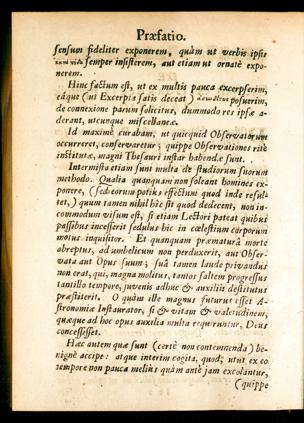 Præfatio.
sensum fideliter exponerem, quàm ut verbis ipsis
semper insisterem, aut etiam ut ornatè expo-
nerem.
Hinc factum est, ut ex multis pauca excerpserim,
eáque (ut Excerpta satis deceat) posuerim,
de connexione parum solicitus, dummodo res ipsæ a-
derant, utcunque miscellaneæ.
Id maximè curabam, ut quicquid Observatorum
occurreret, conservaretur; quippe Observationes ritè
institutæ, magni Thesauri instar habendæ sunt.
Intermista etiam sunt multa de studiorum suorum
methodo. Qualia quanquam non soleant homines ex-
ponere, (sed eorum potiùs effectum quod inde resul-
tet,) quum tamen nihil hîc sit quod dedecent, non in-
commodum visum est, si etiam Lectori pateat quibus
passibus incesserit sedulus hic in cœlestium corporum
motus inquisitor. Et quanquam præmaturâ morte
abreptus, ad umbilicum non perduxerit, aut Obser-
vata aut Opus suum; suâ tamen laude privandus
non erat, qui, magna molitus, tantos saltem progressus
tantillo tempore, juvenis adhuc & auxiliis destitutus
præstiterit. O quàm ille magnus futurus esset A-
stronomiæ Instaurator, si & vitam & valetudinem,
quæque ad hoc opus auxilia multa requiruntur, Deus
concessisset.
Hæc autem quæ sunt (certè non contemnenda) be-
nignè accipe: atque interim cogita, quod, utut ex eo
tempore non pauca meliùs quàm antè jam excolantur,
(quippe